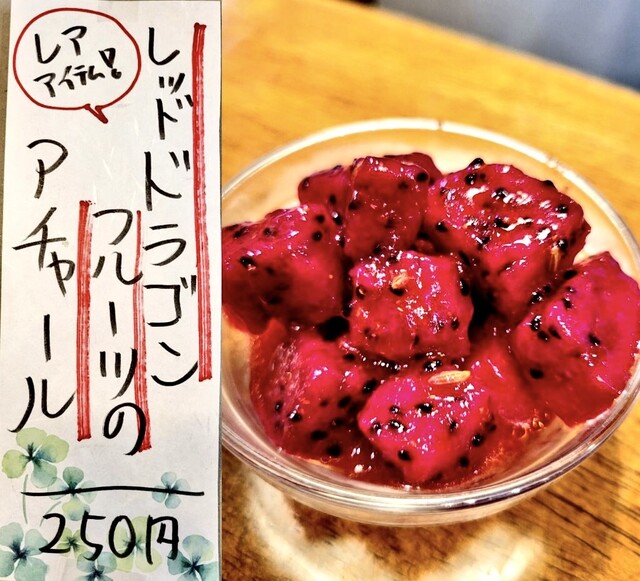 レア
アイテム!
レッドドラゴン
フルーツの
アチャール
250円